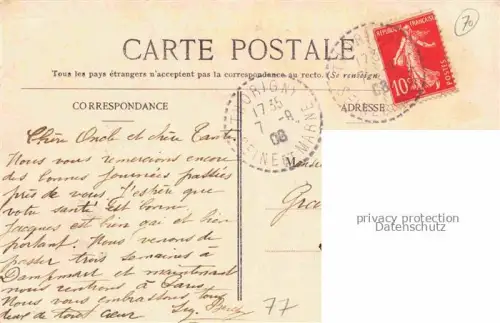 70
CARTE POSTALE
Tous les pays étrangers n'acceptent pas la correspondance au recto. (Se renseign
CORRESPONDANCE
ADRESSE
REPUBLIQUE FRANÇAISE
10c
POSTES
THORIGNY
17 35
7 - 8
08
SEINE ET MARNE
Chère Oncle et chère Tante
Nous vous remercions encore
des bonnes journées passées
près de vous. J'espère que
votre santé est bonne
Jacques est bien gai et bien
portant. Nous venons de
passer trois semaines à
Dampmart et maintenant
nous rentrons à Paris
Nous vous embrassons tous
deux de tout cœur
Monsie
Gra
privacy protection
Datenschutz
77